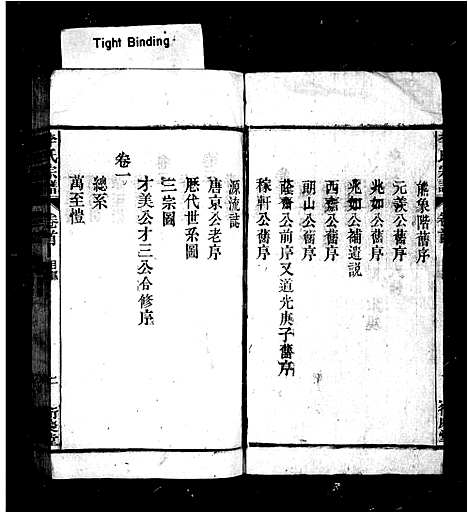 Tight Binding
熊象階舊序
元羨公舊序
兆如公舊序
兆如公補遺説
西齋公舊序
朗山公舊序
蔭齋公前序又道光庚子舊序
稼軒公舊序
源流誌
唐京公老序
歷代世系圖
三宗圖
才美公才三公合修序
卷一
總系
萬至愷
氏宗譜
卷首